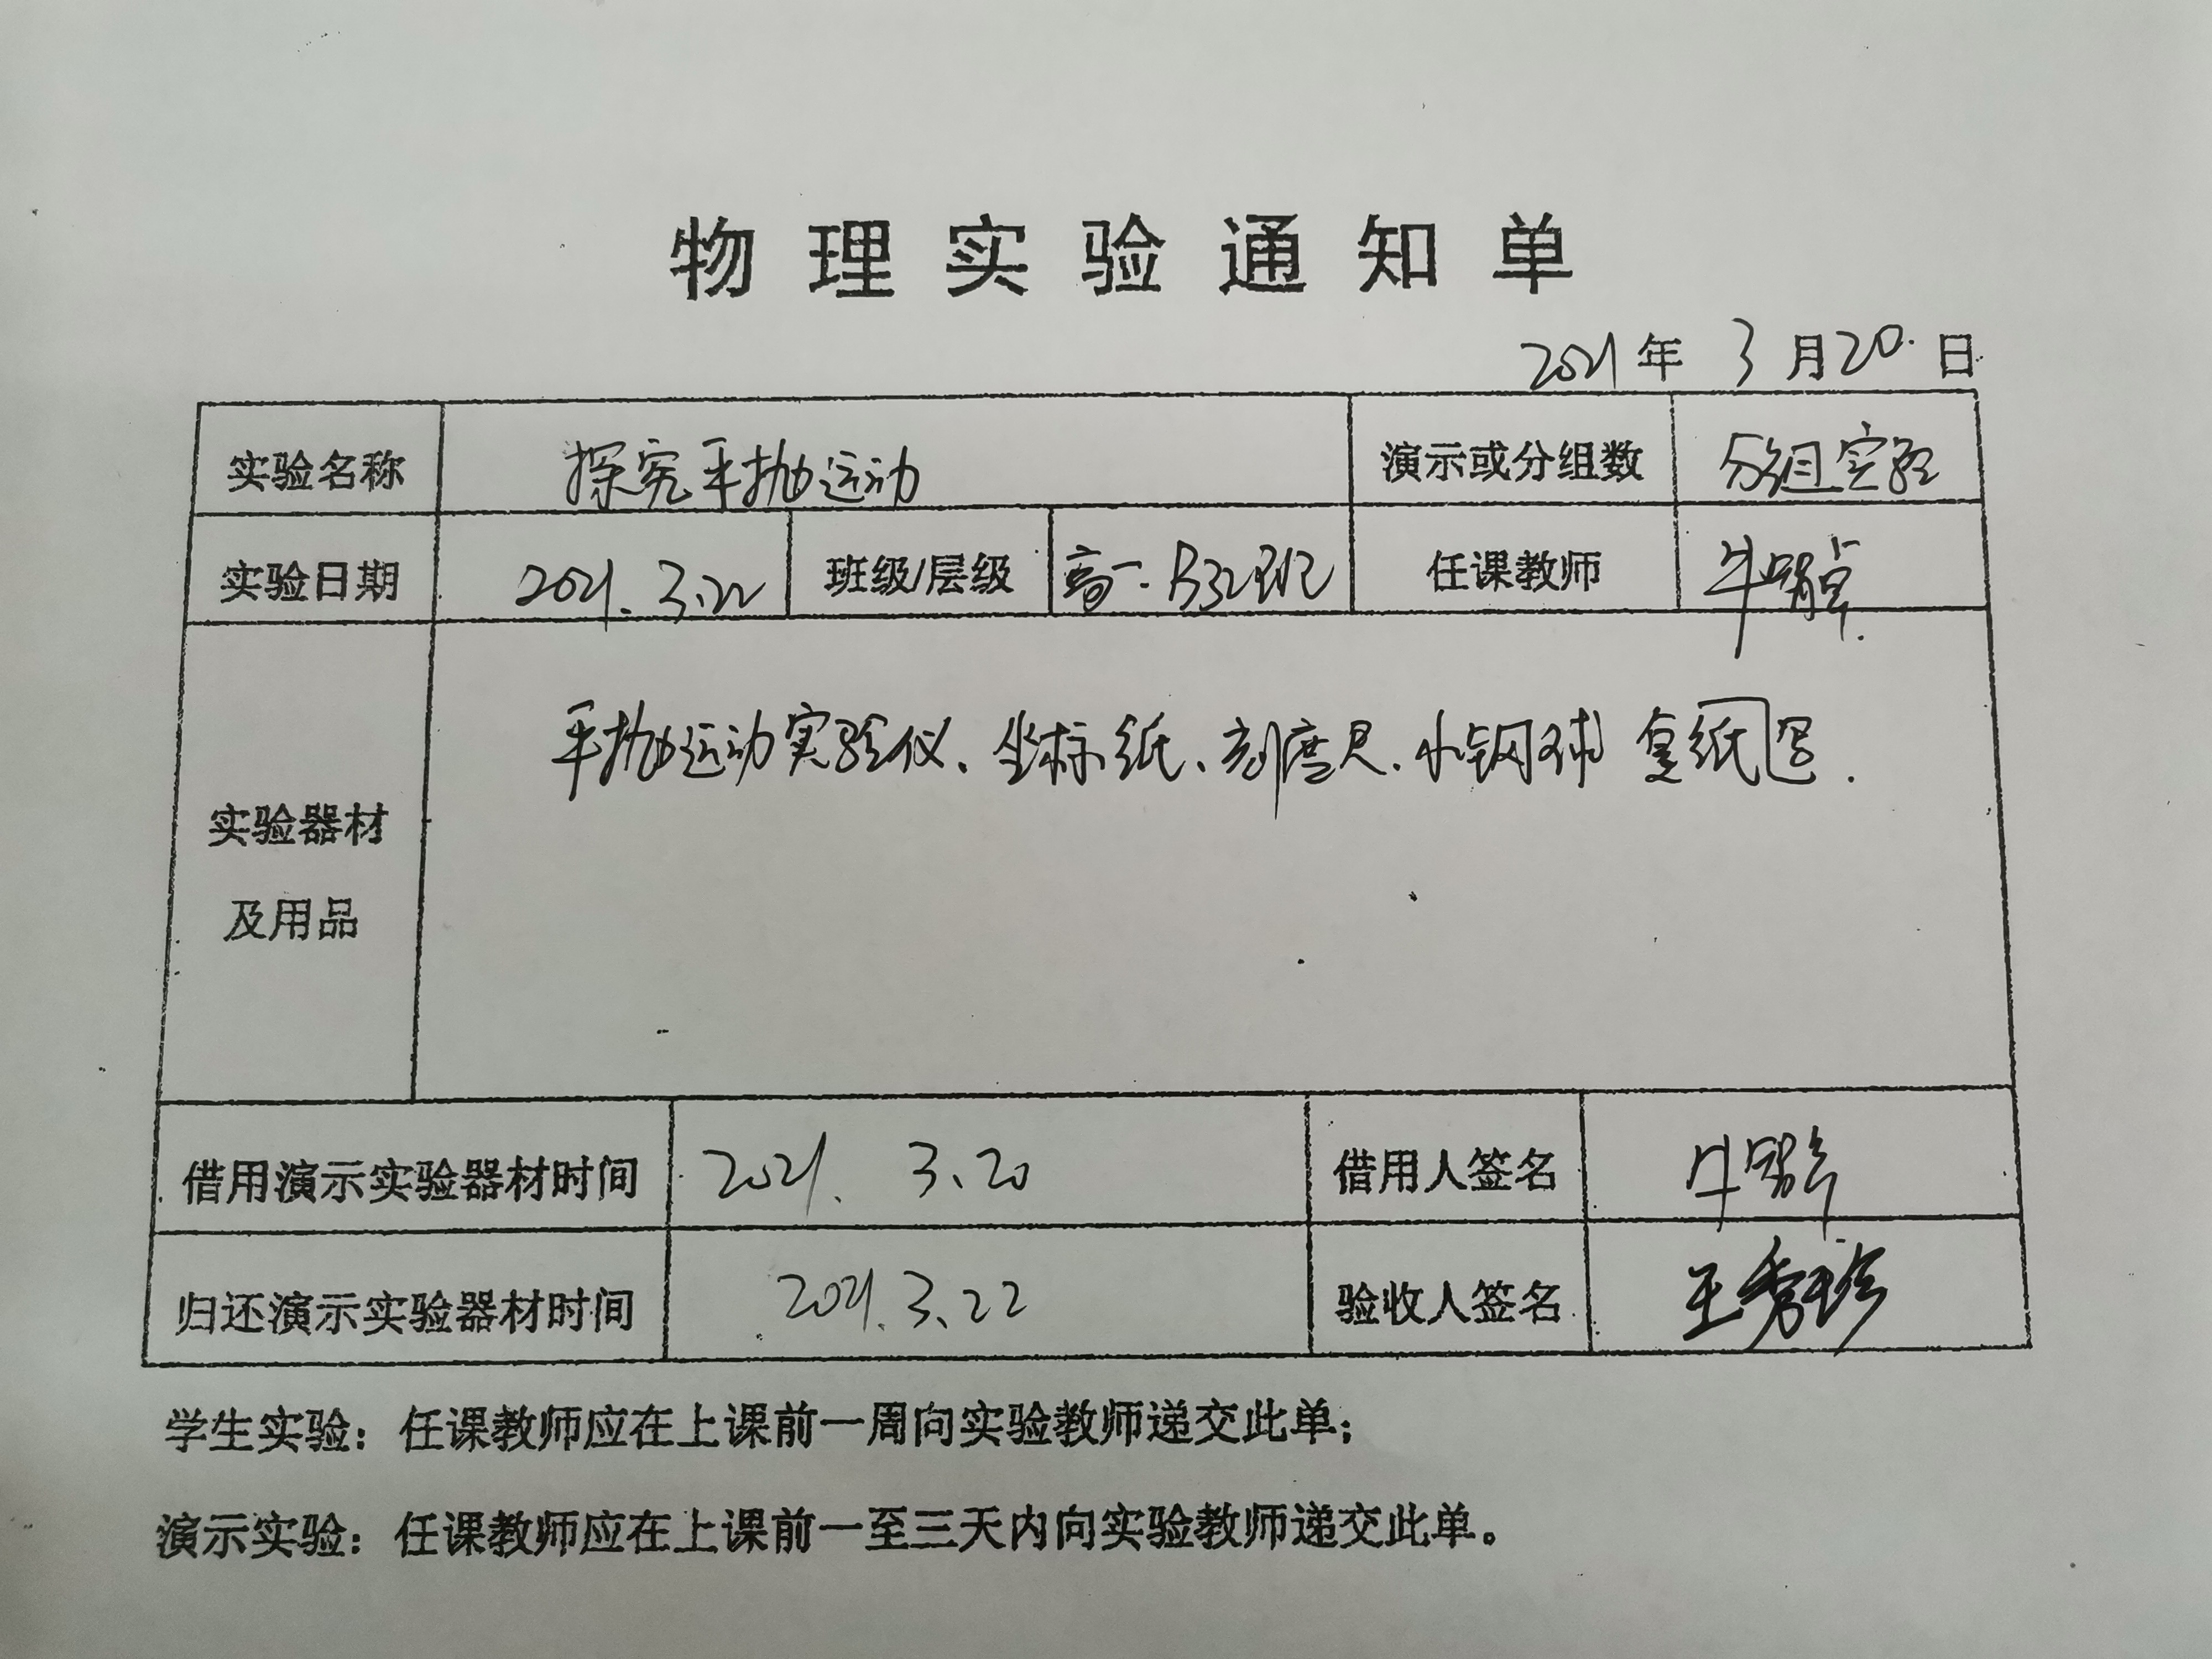 物理实验通知单
2021年 3月20日
实验名称 探究平抛运动 演示或分组数 分组实验
实验日期 2021.3.22 班级/层级 高一.B32班 任课教师 牛
平抛运动实验仪、坐标纸、刻度尺、小钢球 复纸写.
实验器材
及用品
借用演示实验器材时间 2021.3.20 借用人签名 牛
归还演示实验器材时间 2021.3.22 验收人签名 王秀珍
学生实验：任课教师应在上课前一周向实验教师递交此单；
演示实验：任课教师应在上课前一至三天内向实验教师递交此单。